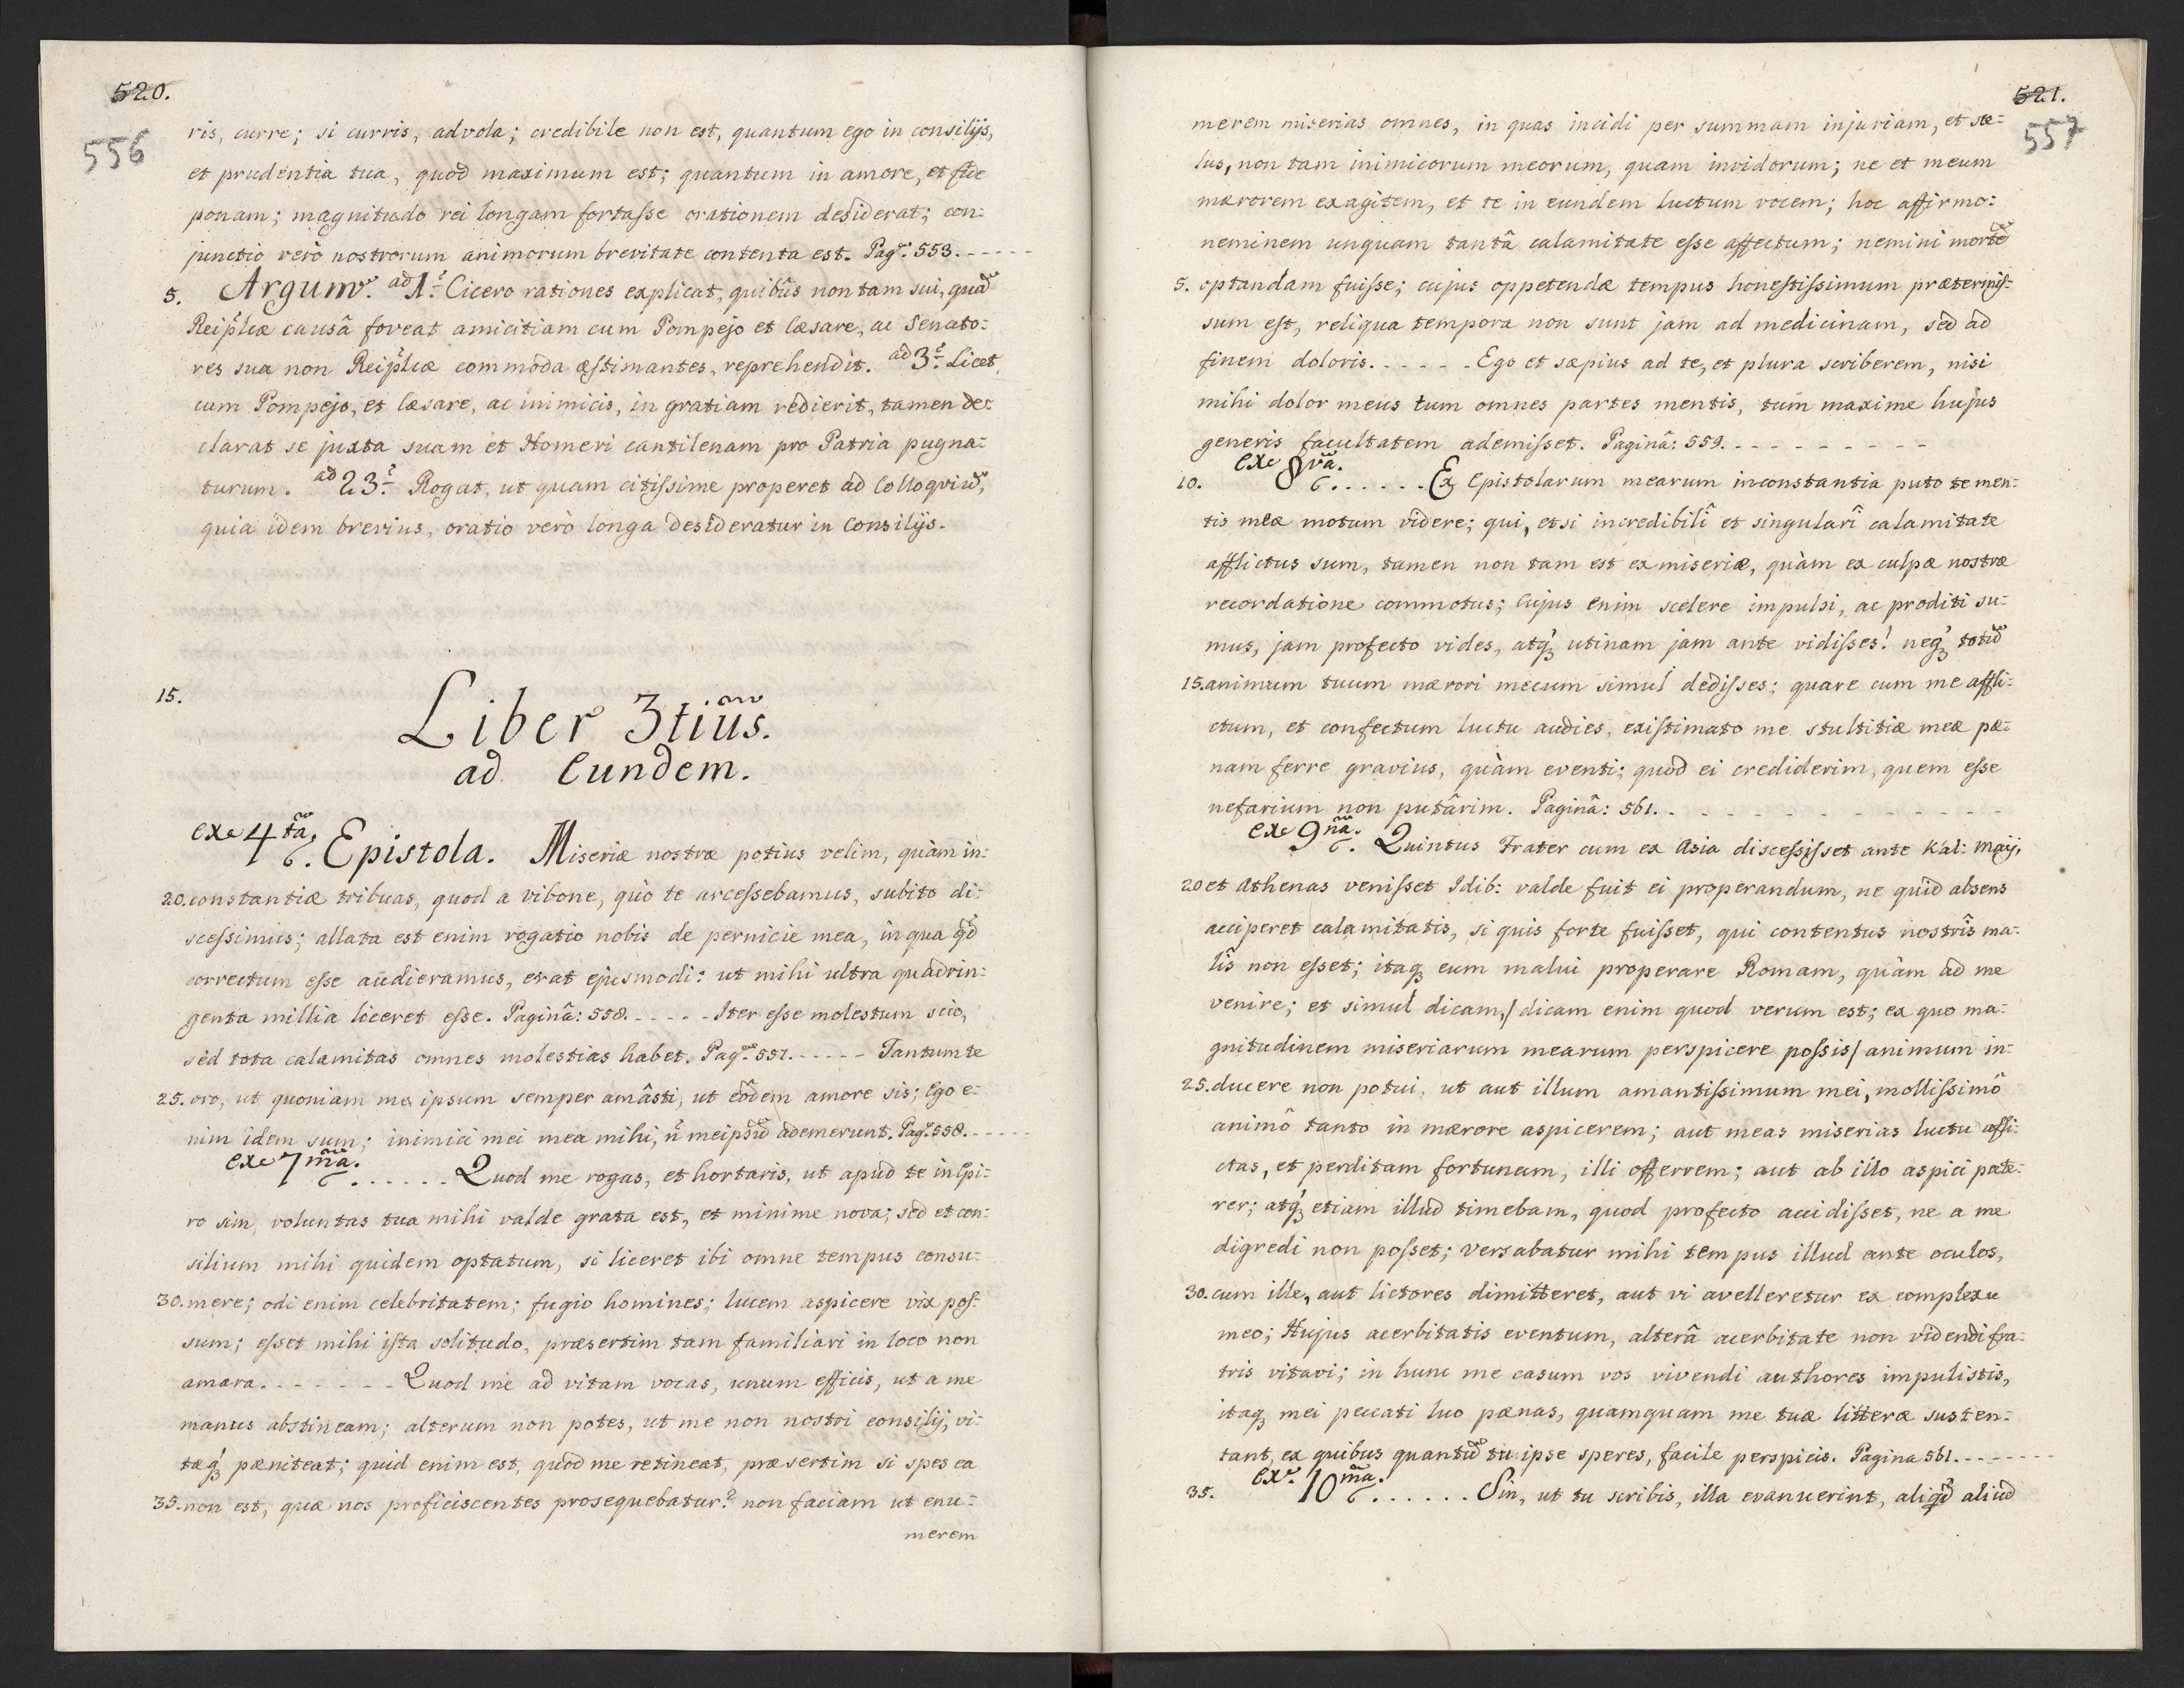 520.
556
ris, curre; si curris, advola; credibile non est, quantum ego in consilijs,
et prudentia tua, quod maximum est; quantum in amore, et fide
ponam; magnitudo rei longam fortaſse orationem desiderat; con=
junctio verò nostrorum animorum brevitate contenta est. Pag. 553.-----
5. Argum. ad 1. Cicero rationes explicat, quibûs non tam sui, quã
Reip̃licæ causâ foveat amicitiam cum Pompejo et Cæsare, ac Senato=
res sua non Reip̃licæ commoda æstimantes, reprehendit. ad 3. Licet
cum Pompejo, et Cæsare, ac inimicis, in gratiam redierit, tamen de=
clarat se juxta suam et Homeri cantilenam pro Patria pugna=
turum. ad 23. Rogat, ut quam citiſsime properet ad Colloqviũ,
quia idem brevius, oratio verò longa desideratur in Consilijs.
15.
Liber 3tiũs.
ad Eundem.
exe 4tã. Epistola. Miseriæ nostræ potius velim, quàm in=
20. constantiæ tribuas, quod a vibone, quò te arceſsebamus, subito di=
sceſsimus; allata est enim rogatio nobis de pernicie mea, in qua qd̃
correctum eſse audieramus, erat ejusmodi: ut mihi ultra quadrin=
genta millia liceret eſse. Paginâ: 558.-----Iter eſse molestum scio,
sed tota calamitas omnes molestias habet. Pag. 557.------Tantum te
25. oro, ut quoniam me ipsum semper amâsti, ut eôdem amore sis; Ego e=
nim idem sum; inimici mei mea mihi, ñ meipsũ ademerunt. Pag. 558.-----
exe 7mã. ......Quod me rogas, et hortaris, ut apud te in Epi=
ro sim, voluntas tua mihi valde grata est, et minime nova; sed et con=
silium mihi quidem optatum, si liceret ibi omne tempus consu=
30. mere; odi enim celebritatem; fugio homines; lucem aspicere vix poſ=
sum; eſset mihi ista solitudo, præsertim tam familiari in loco non
amara.-------Quod me ad vitam vocas, unum efficis, ut a me
manus abstineam; alterum non potes, ut me non nostri consilij, vi=
tæq́ pæniteat; quid enim est, quod me retineat, præsertim si spes ea
35. non est, quæ nos proficiscentes prosequebatur? non faciam ut enu=
merem
521.
557
merem miserias omnes, in quas incidi per summam injuriam, et sce=
lus, non tam inimicorum meorum, quam invidorum; ne et meum
mærorem exagitem, et te in eundem luctum vocem; hoc affirmo:
neminem unquam tantâ calamitate eſse affectum; nemini mortẽ
5. optandam fuiſse; cujus oppetendæ tempus honestiſsimum prætermiſ=
sum est, reliqua tempora non sunt jam ad medicinam, sed ad
finem doloris.------Ego et sæpius ad te, et plura scriberem, nisi
mihi dolor meus tum omnes partes mentis, tum maxime hujus
generis facultatem ademiſset. Paginâ: 559.---------
10. exe 8vã. ......Ex Epistolarum mearum inconstantia puto te men=
tis meæ motum videre; qui, etsi incredibilî et singularî calamitate
afflictus sum, tamen non tam est ex miseriæ, quàm ex culpæ nostræ
recordatione commotus; Cujus enim scelere impulsi, ac proditi su=
mus, jam profecto vides, atq́ utinam jam ante vidiſses! neq́ totũ
15. animum tuum mærori mecum simul dediſses; quare cum me affli=
ctum, et confectum luctu audies, existimato me stultitiæ meæ pæ=
nam ferre gravius, quàm eventi; quod ei crediderim, quem eſse
nefarium non putârim. Paginâ: 561.--------------
exe 9nã. Quintus Frater cum ex Asia disceſsiſset ante Kal: Maij,
20. et Athenas veniſset Idib: valde fuit ei properandum, ne quid absens
acciperet calamitatis, si quis forte fuiſset, qui contentus nostrîs ma=
lîs non eſset; itaq eum malui properare Romam, quàm ad me
venire; et simul dicam,/ dicam enim quod verum est; ex quo ma=
gnitudinem miseriarum mearum perspicere poſsis/ animum in=
25. ducere non potui, ut aut illum amantiſsimum mei, molliſsimô
animô tanto in mærore aspicerem; aut meas miserias luctu affli=
ctas, et perditam fortunam, illi offerrem; aut ab illo aspici pate=
rer; atq́ etiam illud timebam, quod profecto accidiſset, ne a me
digredi non poſset; versabatur mihi tempus illud ante oculos,
30. cum ille, aut lictores dimitteret, aut vi avelleretur ex complexu
meo; Hujus acerbitatis eventum, alterâ acerbitate non videndi fra=
tris vitavi; in hunc me casum vos vivendi authores impulistis,
itaq mei peccati luo pænas, quamquam me tuæ litteræ susten=
tant, ex quibus quantũ tu ipse speres, facile perspicis. Pagina 561.-------
35. ex. 10mã. ......Sin, ut tu scribis, illa evanuerint, aliqd̃ aliud